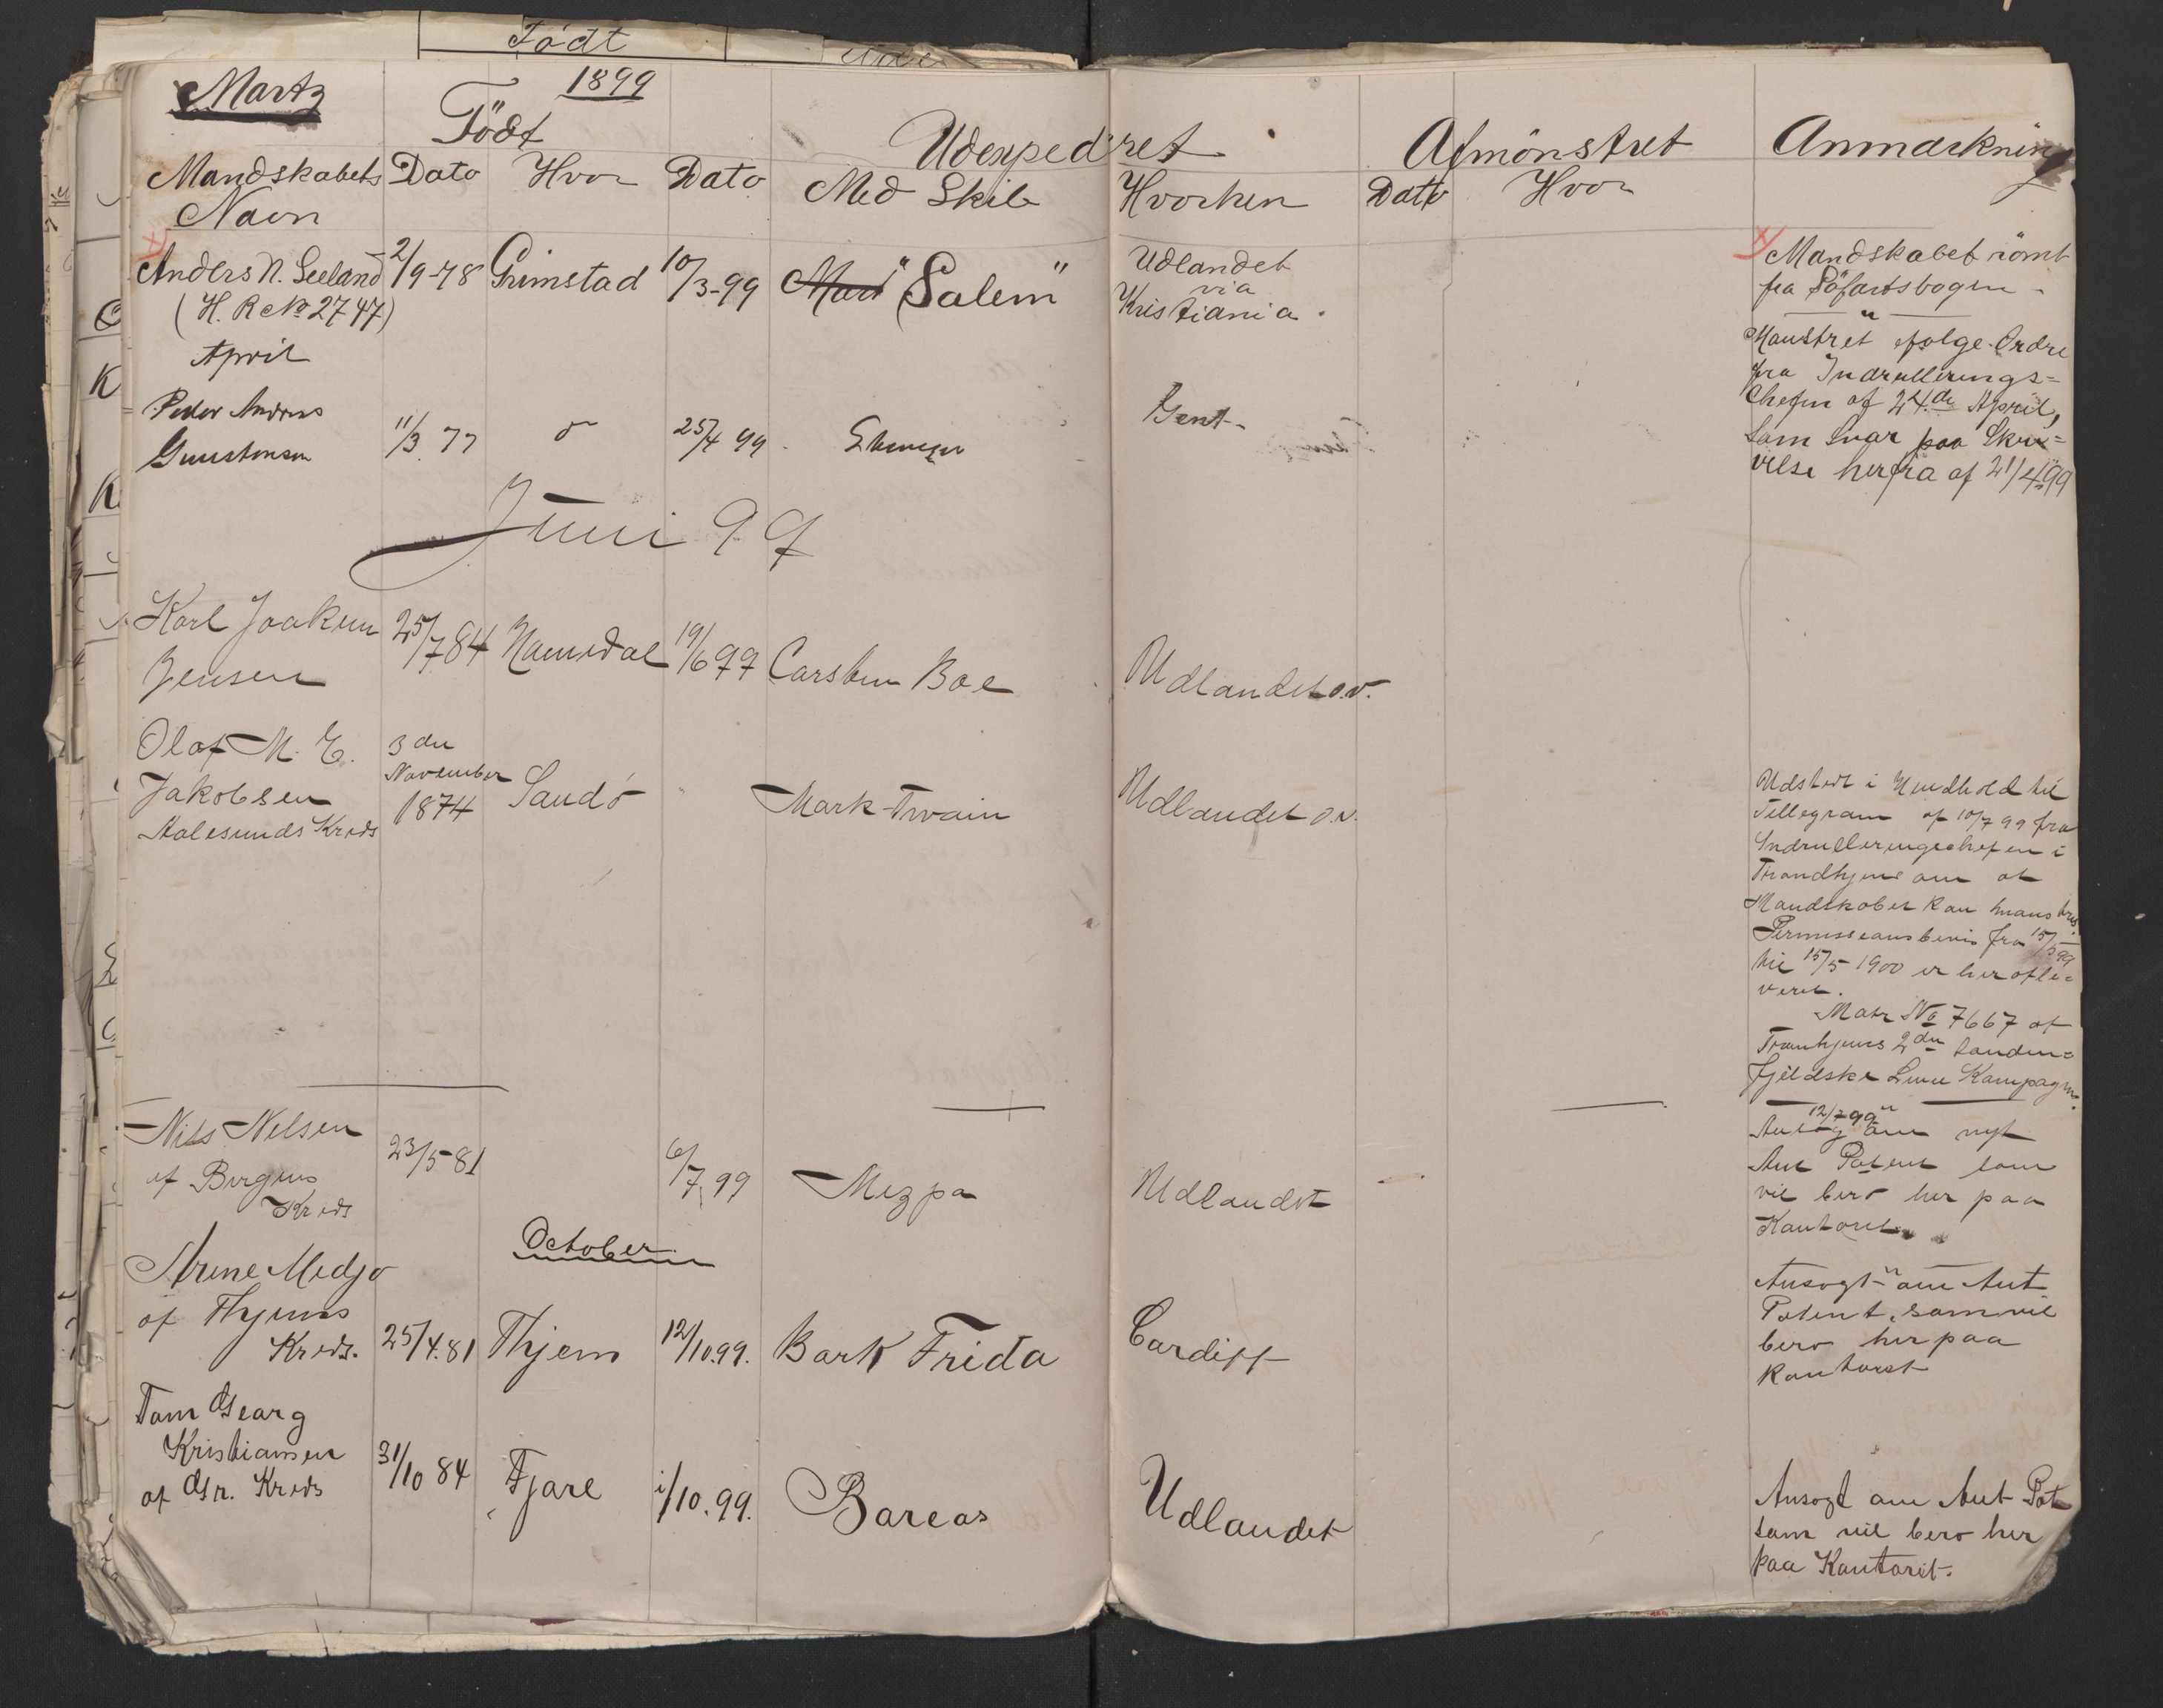 Födt
Martz
1899
Födt
Udexpedret
Afmönstret
Anmærkning
Mandskabets Dato Hvor Dato Med Skib Hvorhen Dato Hvor
Navn
Anders N. Seeland 2/9-78 Grimstad 10/3-99 "Salem" Udlandet
(H. R No 2747) via
Kristiania.
x) Mandskabet römt
fra Söfartsbogen.
April
Peder Andreas
Gunstensen 11/3 77 25/4 99 Ebeneser Gent
Mønstret efølge Ordre
fra Indrullerings=
Chefen af 24de April,
som Svar paa Skri=
velse herfra af 21/4 99
Juni 99
Karl Joakim 25/7 84 Namsdal 19/6 99 Carsten Boe Udlandet o.v.
Jensen
Olaf M. E. 3 die
November
Jakobsen 1874 Sandö Mark Twain Udlandet o.v.
Aalesunds Kreds
Udstedt i Henhold til
Tellegram af 10/7 99 fra
Indrulleringschefen i
Trondhjem om at
Mandskabet kan mønstres.
Permissionsbevis fra 15/5 99
til 15/5 1900 er her afle=
veret.
Matr No 7667 af
Tronhjems 2den Sønden=
fjeldske Linie Kompagni.
Nils Nelsen 23/5 81 6/7 99 Mizpa Udlandet
af Bergens
Kreds
12/7 99
Ansög om nyt
Ant Patent som
vil bero her paa
Kontoret.
October
Arne Medjo
af Thjems
Kreds. 25/4.81 Thjem 12/10.99. Bark Frida Cardiff
Ansogt om Ant
Patent, som vil
bero her paa
kontoret
Tom Georg
Kristiansen
af Gr. Kreds 31/10 84 Fjære i/10.99. Boreas Udlandet
Ansogt om Ant Pat
som vil bero her
paa Kontoret.